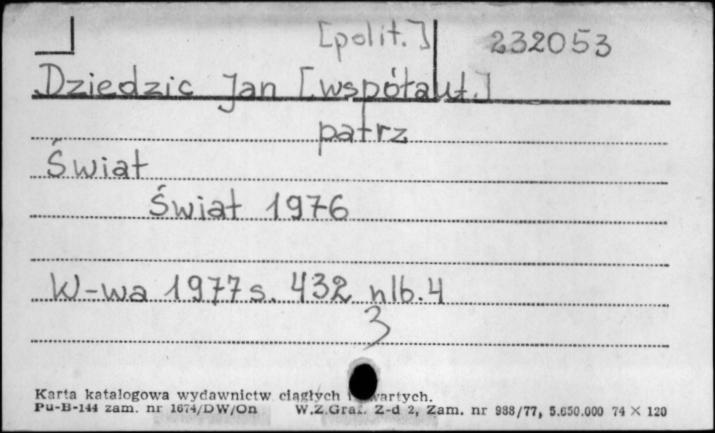 [polit.] 232053
Dziedzic Jan [współaut.]
patrz
Świat
Świat 1976
W-wa 1977 s. 432 nlb. 4
3
Karta katalogowa wydawnictw ciągłych i zwartych.
Pu-B-144 zam. nr 1674/DW/On W.Z.Graf. Z-d 2, Zam. nr 938/77, 5.650.000 74 × 120